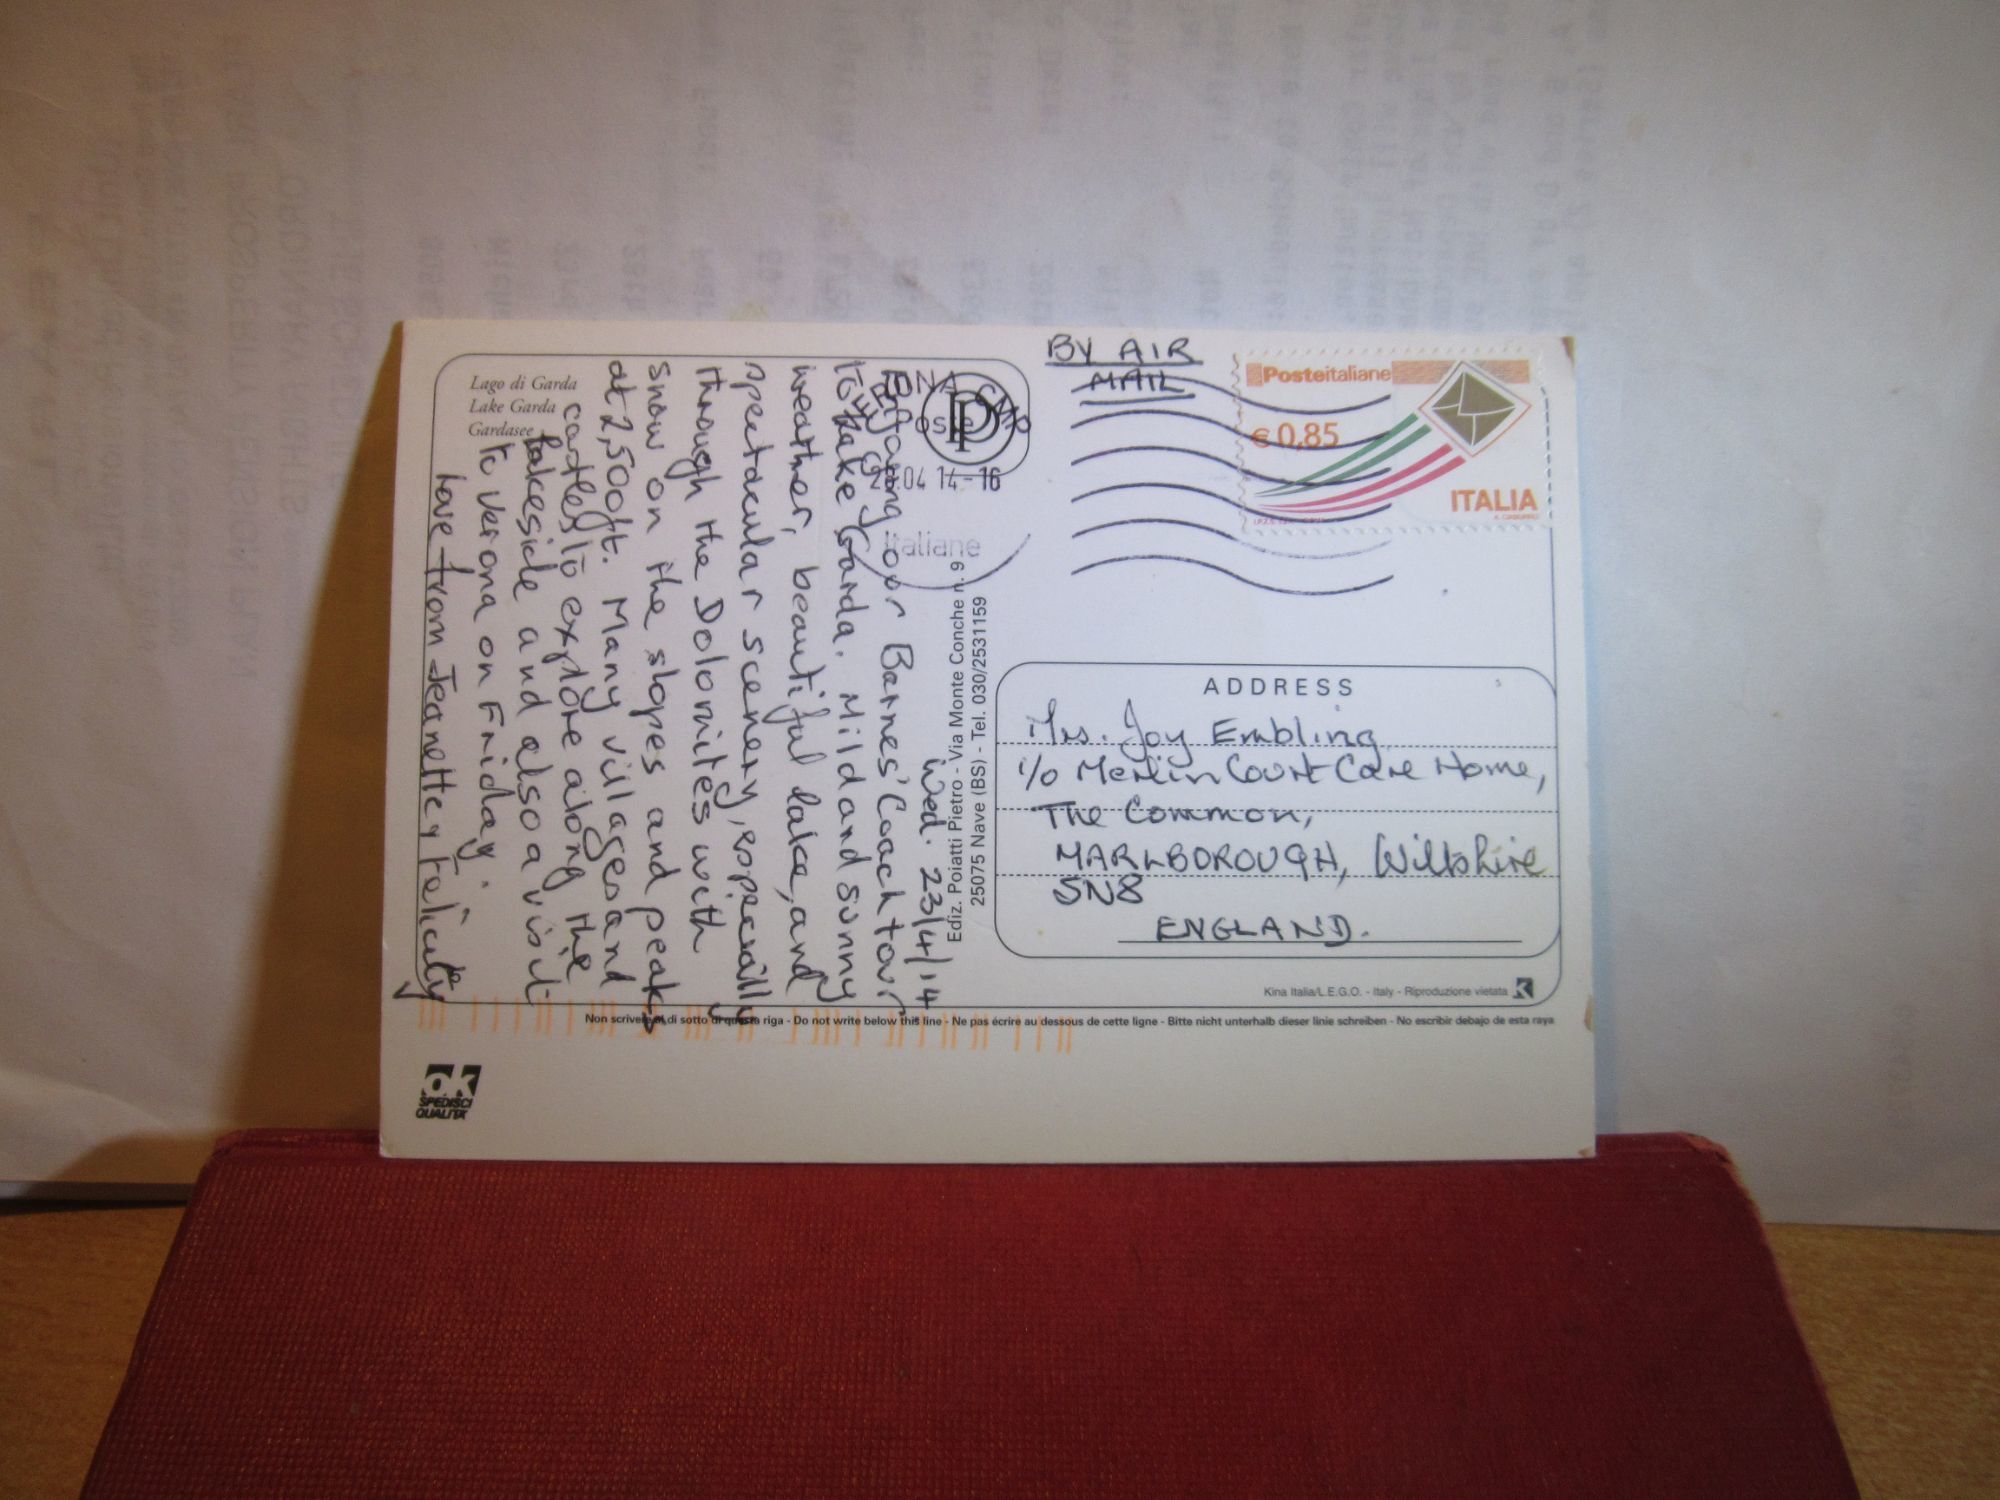 Lago di Garda
Lake Garda
Gardasee
Wed. 23/4/14
Enjoying our Barnes' Coach tour
to Lake Garda. Mild and sunny
weather, beautiful lake, and
spectacular scenery, especially
through the Dolomites with
snow on the slopes and peaks
at 2,500ft. Many villages and
castles to explore along the
lakeside and also a visit
to Verona on Friday.
Love from Jeanette & Felicity
Ediz. Poiatti Pietro - Via Monte Conche n. 9
25075 Nave (BS) - Tel. 030/2531159
.04 14-16
Italiane
BY AIR
MAIL
Posteitaliane
€ 0,85
ITALIA
ADDRESS
Mrs. Joy Embling
c/o Merlin Court Care Home,
The Common,
MARLBOROUGH, Wiltshire
SN8
ENGLAND.
Kina Italia/L.E.G.O. - Italy - Riproduzione vietata K
Non scrivere al di sotto di questa riga - Do not write below this line - Ne pas écrire au dessous de cette ligne - Bitte nicht unterhalb dieser linie schreiben - No escribir debajo de esta raya
OK
SPEDISCI
QUALITA'